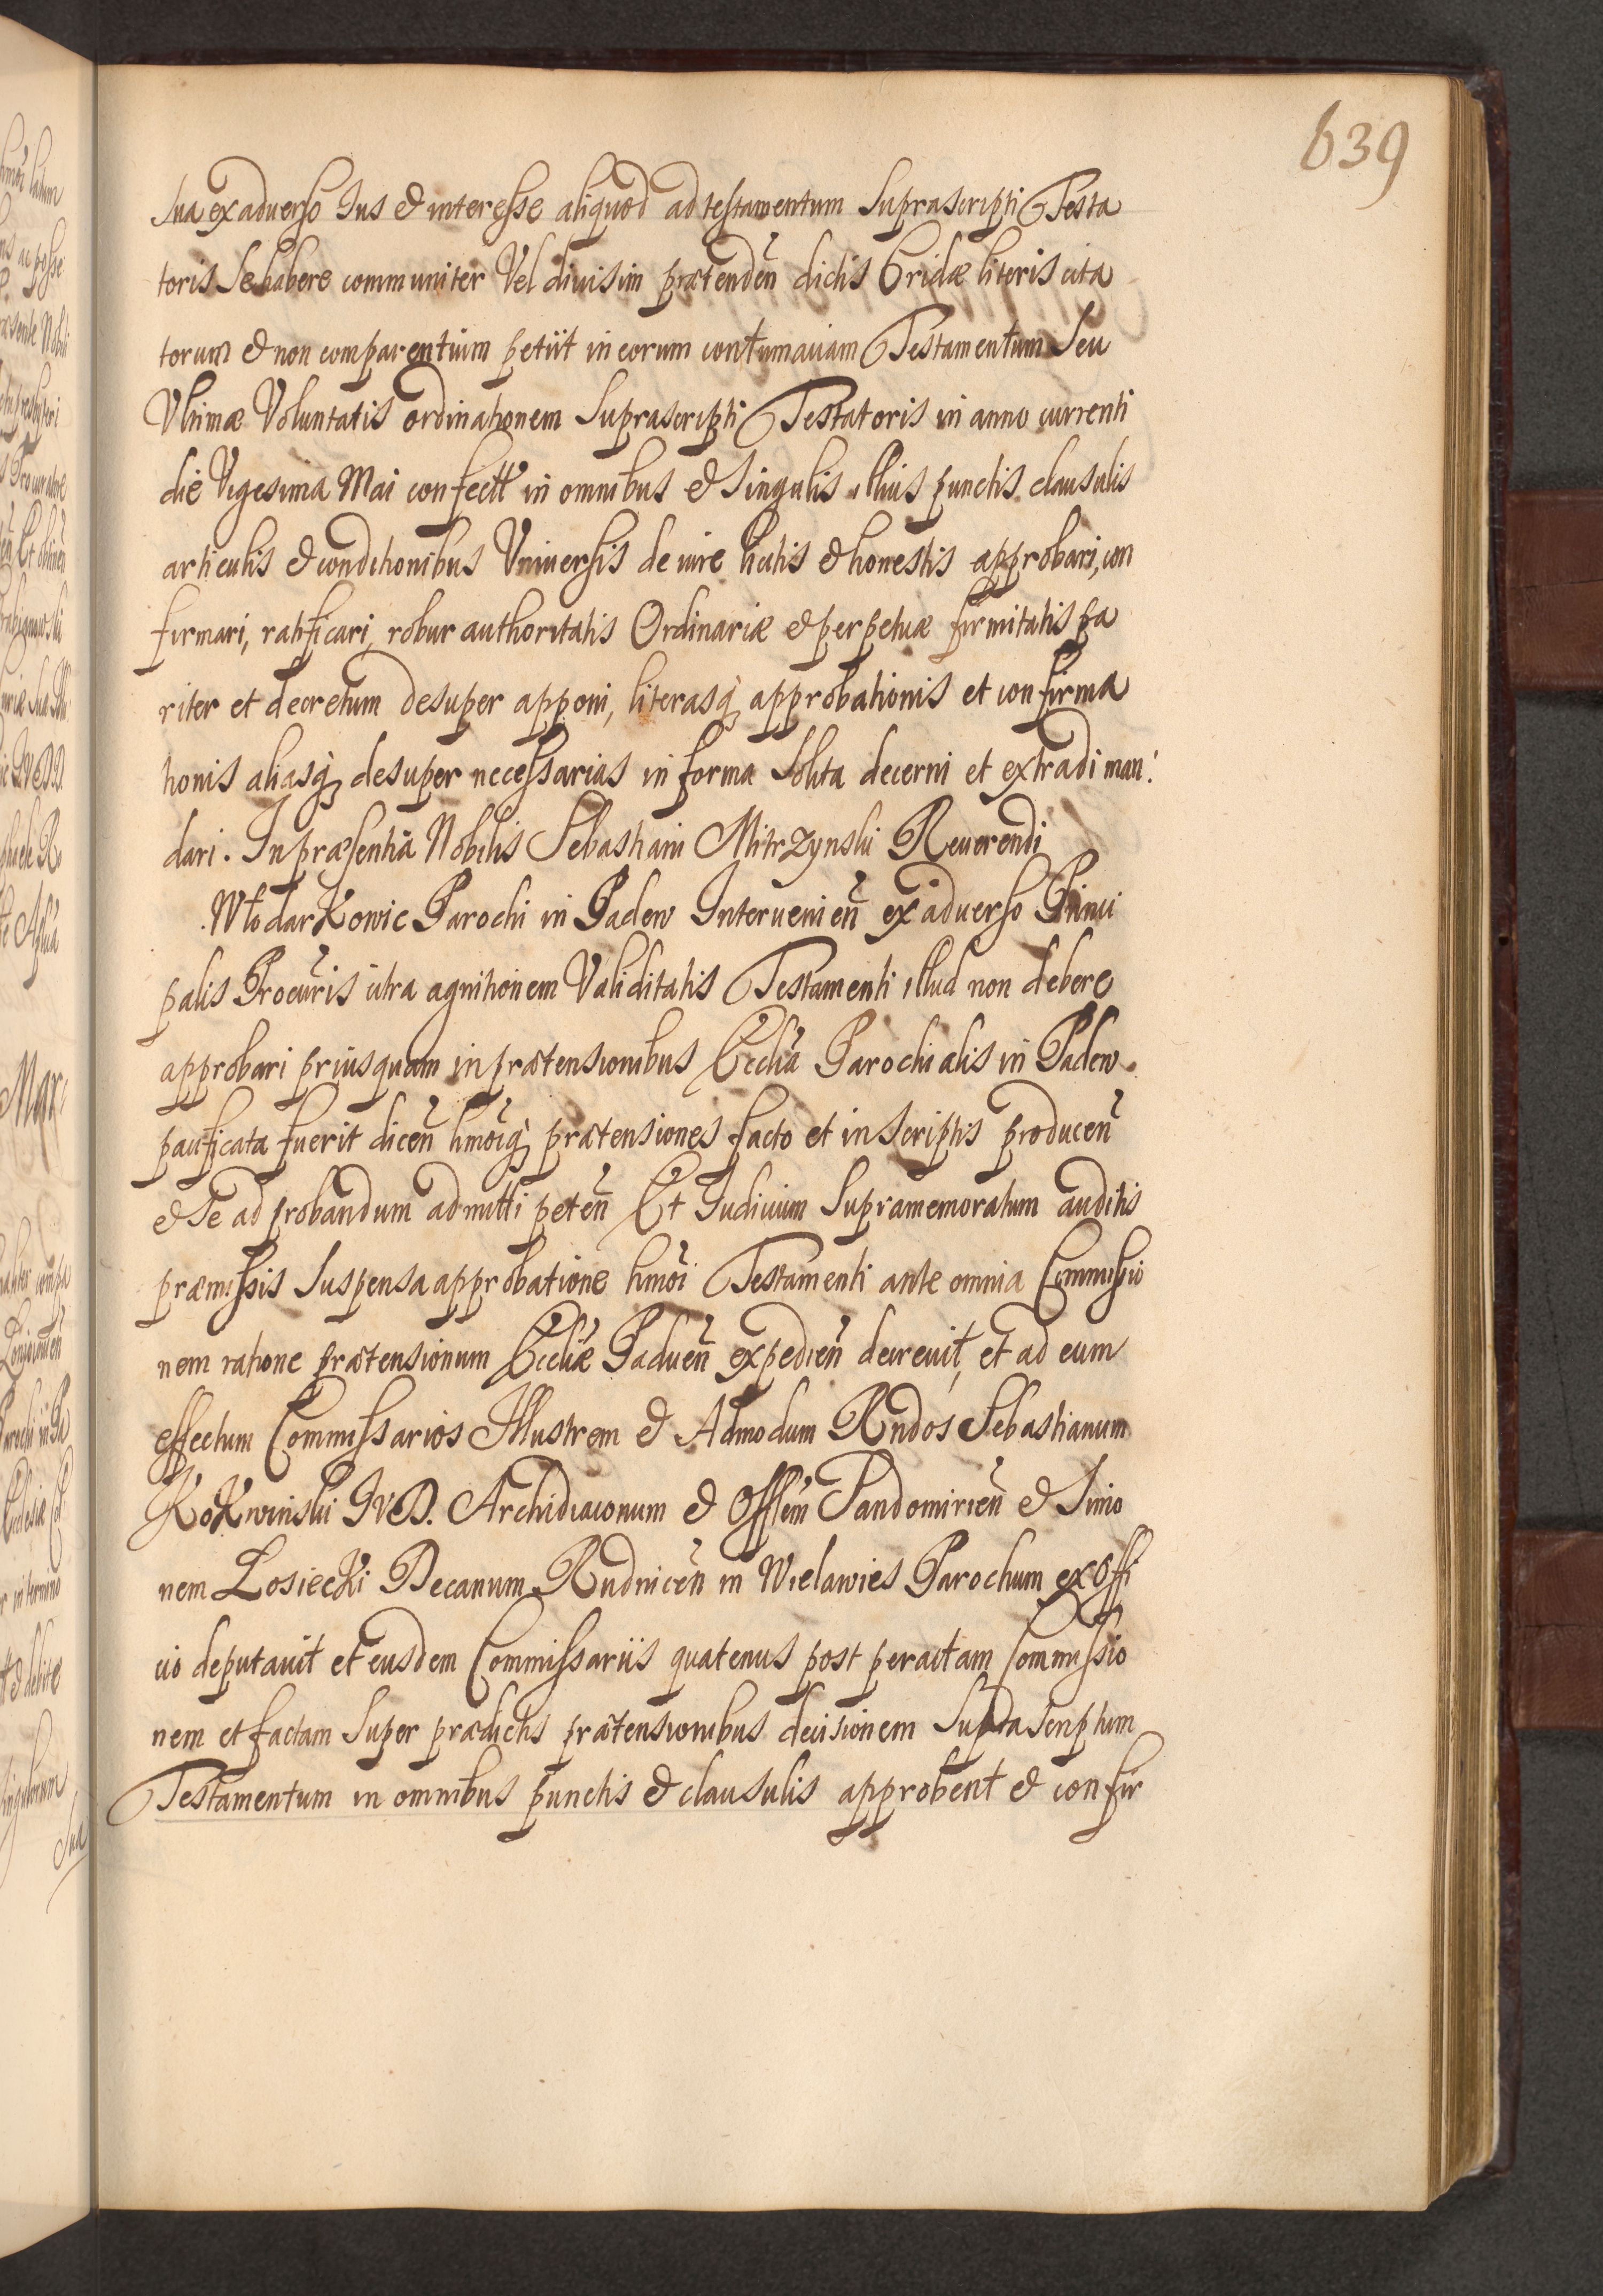 639
sua ex aduerso Jus & interesse aliquod ad testamentum Suprascripti Testa
toris Se habere communiter Vel diuisim prætendeñ dictis Cridæ literis cita
torum & non comparentium petiit in eorum contumaciam Testamentum Seu
Vltimæ Voluntatis ordinationem Suprascripti Testatoris in anno currenti
die Vigesima Mai confectt in omnibus & Singulis illius punctis clausulis
articulis & conditionibus Vniuersis de iure licitis & honestis approbari, con
firmari, ratificari, robur authoritatis Ordinariæ & perpetuæ firmitatis pa
riter et decretum desuper apponi, literasq; approbationis et confirma
tionis aliasq; desuper necessarias in forma Solita decerni et extradi man:
dari. In præsentia Nobilis Sebastiani Mitrzynski Reuerendi
Włodarkowic Parochi in Padew Interuenieñ ex aduerso Princi
palis Procuris citra agnitionem Validitatis Testamenti illud non debere
approbari priusquam in prætensionibus Eccliã Parochialis in Padew
pacificata fuerit diceñ hmoiq; prætensiones facto et in Scriptis produceñ
& Se ad probandum admitti peteñ Et Iudicium Supramemoratum auditis
præmissis Suspensa approbatione hmoi Testamenti ante omnia Commissio
nem ratione prætensionum Eccliæ Padueñ expedieñ decreuit, et ad eum
effectum Commissarios Illustrem & Admodum Rndos Sebastianum
Kokwinski IVD. Archidiaconum & Offlem Sandomirieñ & Simo
nem Łosiecki Decanum Rudniceñ in Wielawies Parochum ex Offi
cio deputauit et eusdem Commissariis quatenus post peractam Commissio
nem et factam Super prædictis prætensionibus decisionem Supta scriptum
Testamentum in omnibus punctis & clausulis approbent & confir